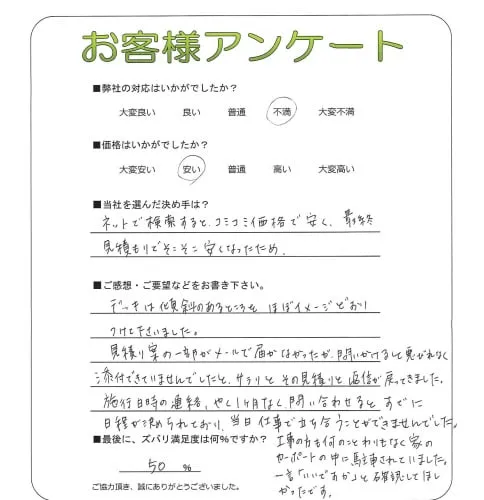 お客様アンケート
■弊社の対応はいかがでしたか？
大変良い　良い　普通　不満　大変不満
■価格はいかがでしたか？
大変安い　安い　普通　高い　大変高い
■当社を選んだ決め手は？
ネットで検索すると、コミコミ価格で安く、最終
見積もりでそこそこ安くなったため。
■ご感想・ご要望などをお書き下さい。
デッキは傾斜のあるところも ほぼイメージどおり
つけて下さいました。
見積り案の一部がメールで届かなかったが、問いかけると悪びれなく
添付できていませんでしたと、サラリと その見積りと返信が戻ってきました。
施行日時の連絡、やく1ヶ月なく、問い合わせると、すでに
日程が決められており、当日仕事で立ち合うことができませんでした。
工事の方も何のことわりもなく家の
カーポートの中に駐車されていました。
一言「いいですか」と確認してほし
かったです。
■最後に、ズバリ満足度は何%ですか？
50 %
ご協力頂き、誠にありがとうございました。